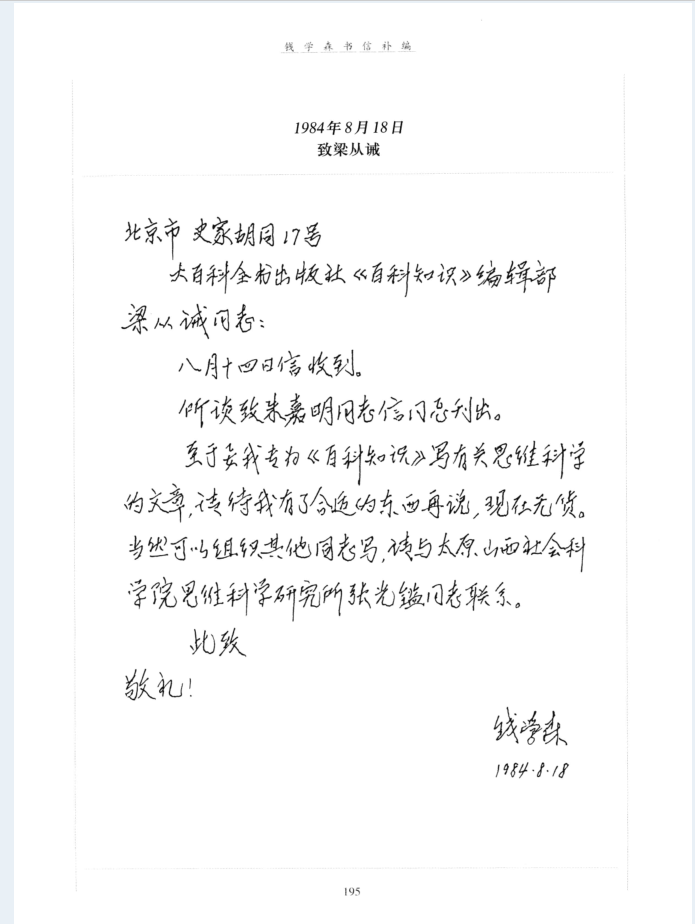 钱学森书信补编
1984年8月18日
致梁从诫
北京市 史家胡同17号
大百科全书出版社《百科知识》编辑部
梁从诫同志：
八月十四日信收到。
所谈致朱嘉明同志信可刊出。
至于要我专为《百科知识》写有关思维科学
的文章，请待我有了合适的东西再说，现在无货。
当然可以组织其他同志写，请与太原山西社会科
学院思维科学研究所张光鑑同志联系。
此致
敬礼！
钱学森
1984.8.18
195